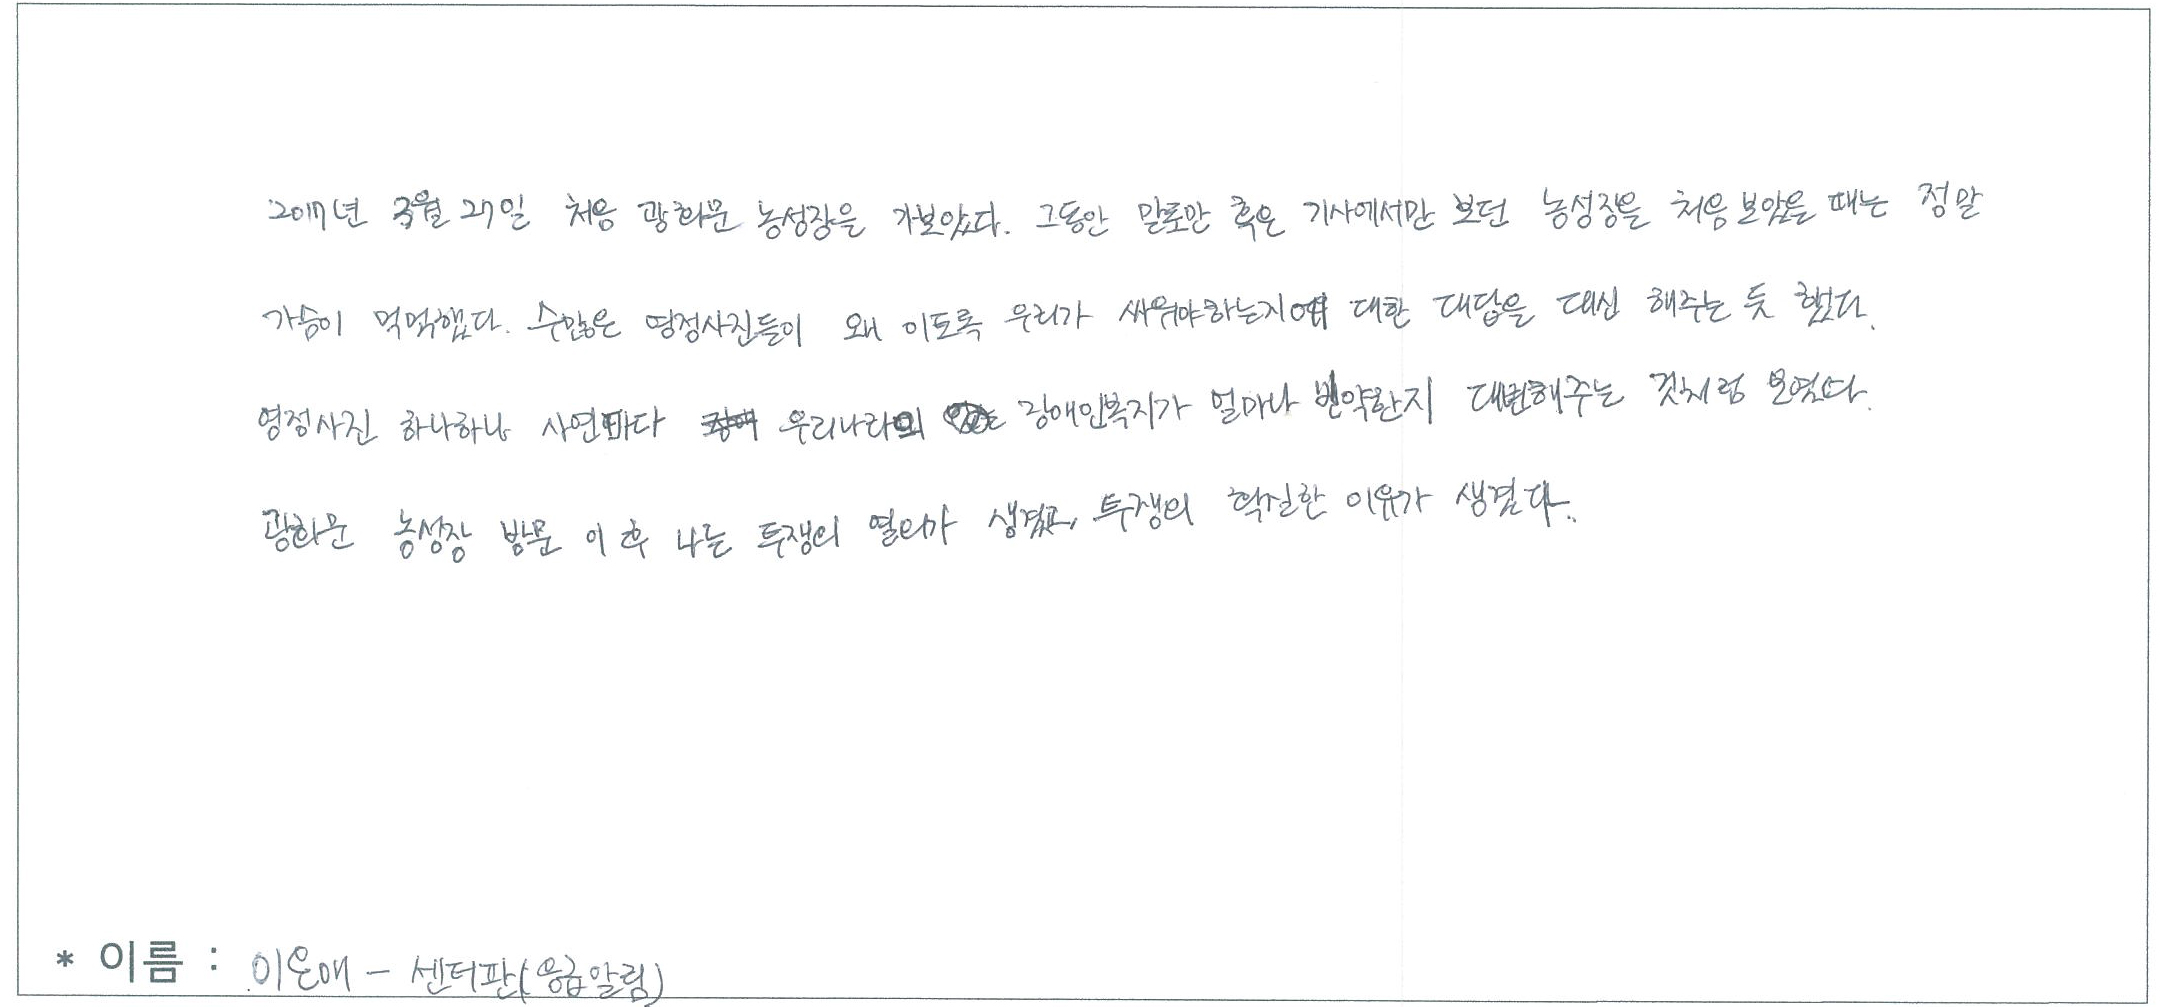 2017년 3월 27일 처음 광화문 농성장을 가보았다. 그동안 말로만 혹은 기사에서만 보던 농성장을 처음 보았을 때는 정말
가슴이 먹먹했다. 수많은 영정사진들이 왜 이토록 우리가 싸워야하는지에 대한 대답을 대신 해주는 듯 했다.
영정사진 하나하나 사연마다 우리나라의 장애인복지가 얼마나 빈약한지 대변해주는 것처럼 보였다.
광화문 농성장 방문 이후 나는 투쟁의 열의가 생겼고, 투쟁의 확실한 이유가 생겼다.
* 이름 : 이온애 - 센터판(응급알림)